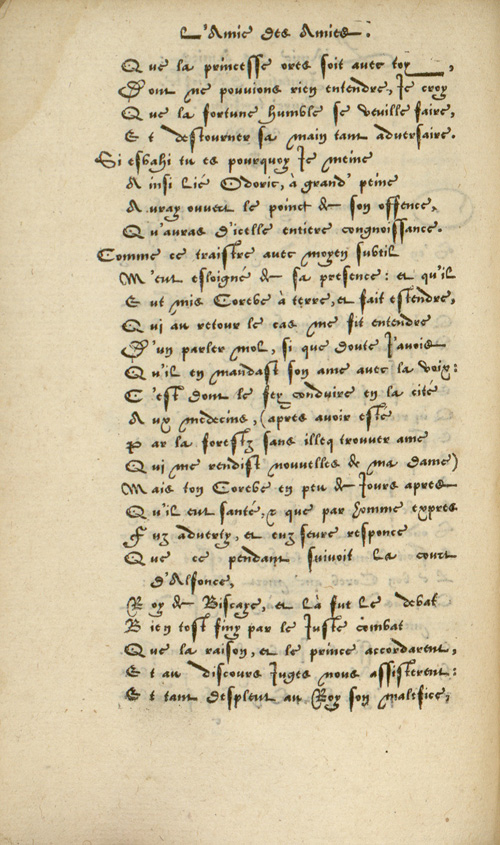 L'Amie des Amies.
Que la princesse ores soit avec toy,
Dont ne pouvions rien entendre, Je croy
Que la fortune humble se veuille faire,
Et destourner sa main tant adversaire.
Si esbahi tu es pourquoy Je meine
Ainsi lié Odoric, à grand' peine
Auray ouvert le poinct de son offence,
Qu'auras d'icelle entiere congnoissance.
Comme ce traistre avec moyen subtil
M'eut esloigné de sa presence: et qu'il
Eut mis Corebe à terre, et fait estendre,
Qui au retour le cas me fit entendre
D'un parler mol, si que doute J'avois
Qu'il en mandast son ame avec la voix:
C'est dont le fey conduire en la cité
Aux medecins, (apres avoir esté
Par la forestz sans illeq trouver ame
Qui me rendist nouvelles de ma dame)
Mais ton Corebe en peu de Jours apres
Qu'il eut santé, & que par homme expres
Fuz adverty, et euz seure responce
Que ce pendant suivoit la court
d'Alfonce,
Roy de Biscaye, et là fut le debat
Bien tost finy par le Juste combat
Que la raison, et le prince accorderent,
Et au discours Juges nous assisterent:
Et tant despleut au Roy son malefice,